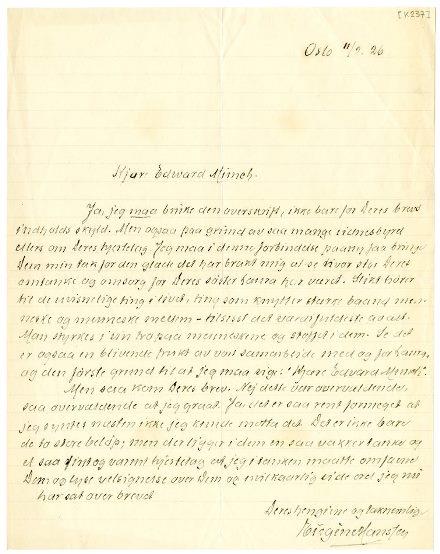 [K 237]
Oslo 11/2. 26
Kjære Edward Munch.
Ja, jeg maa bruke den overskrift, ikke bare for Deres brevs
indholds skyld. Men ogsaa paa grund av saa mange vidnesbyrd
ellers om Deres hjertelag. Jeg maa i denne forbindelse paany faa bringe
Dem min tak for den glæde det har brakt mig at se hvor stor Deres
omtanke og omsorg for Deres søster Laura har værd. Slikt hører
til de uvisnelige ting i livet, ting som knytter sterke baand men-
neske og menneske mellem - tilsist det værdifuldeste av alt.
Man styrkes i sin tro paa menneskene og støtter i dem. Se det
er ogsaa en blivende frukt av vort samarbeide med og for Laura,
og den første grund til at jeg maa sige: "Kjære Edvard Munch".
Men saa kom Deres brev. Nej dette var overvældende,
saa overvældende at jeg graat. Ja, det er saa rent formeget at
jeg syntes næsten ikke jeg kunde motta det. Det er ikke bare
de to store beløp; men der ligger i dem en saa vakker tanke og
et saa fint og varmt hjertelag at jeg i tanken maatte omfavne
Dem og lyse velsignelse over Dem og uvilkaarlig
har sat over brevet
Deres hengivne og taknemlige